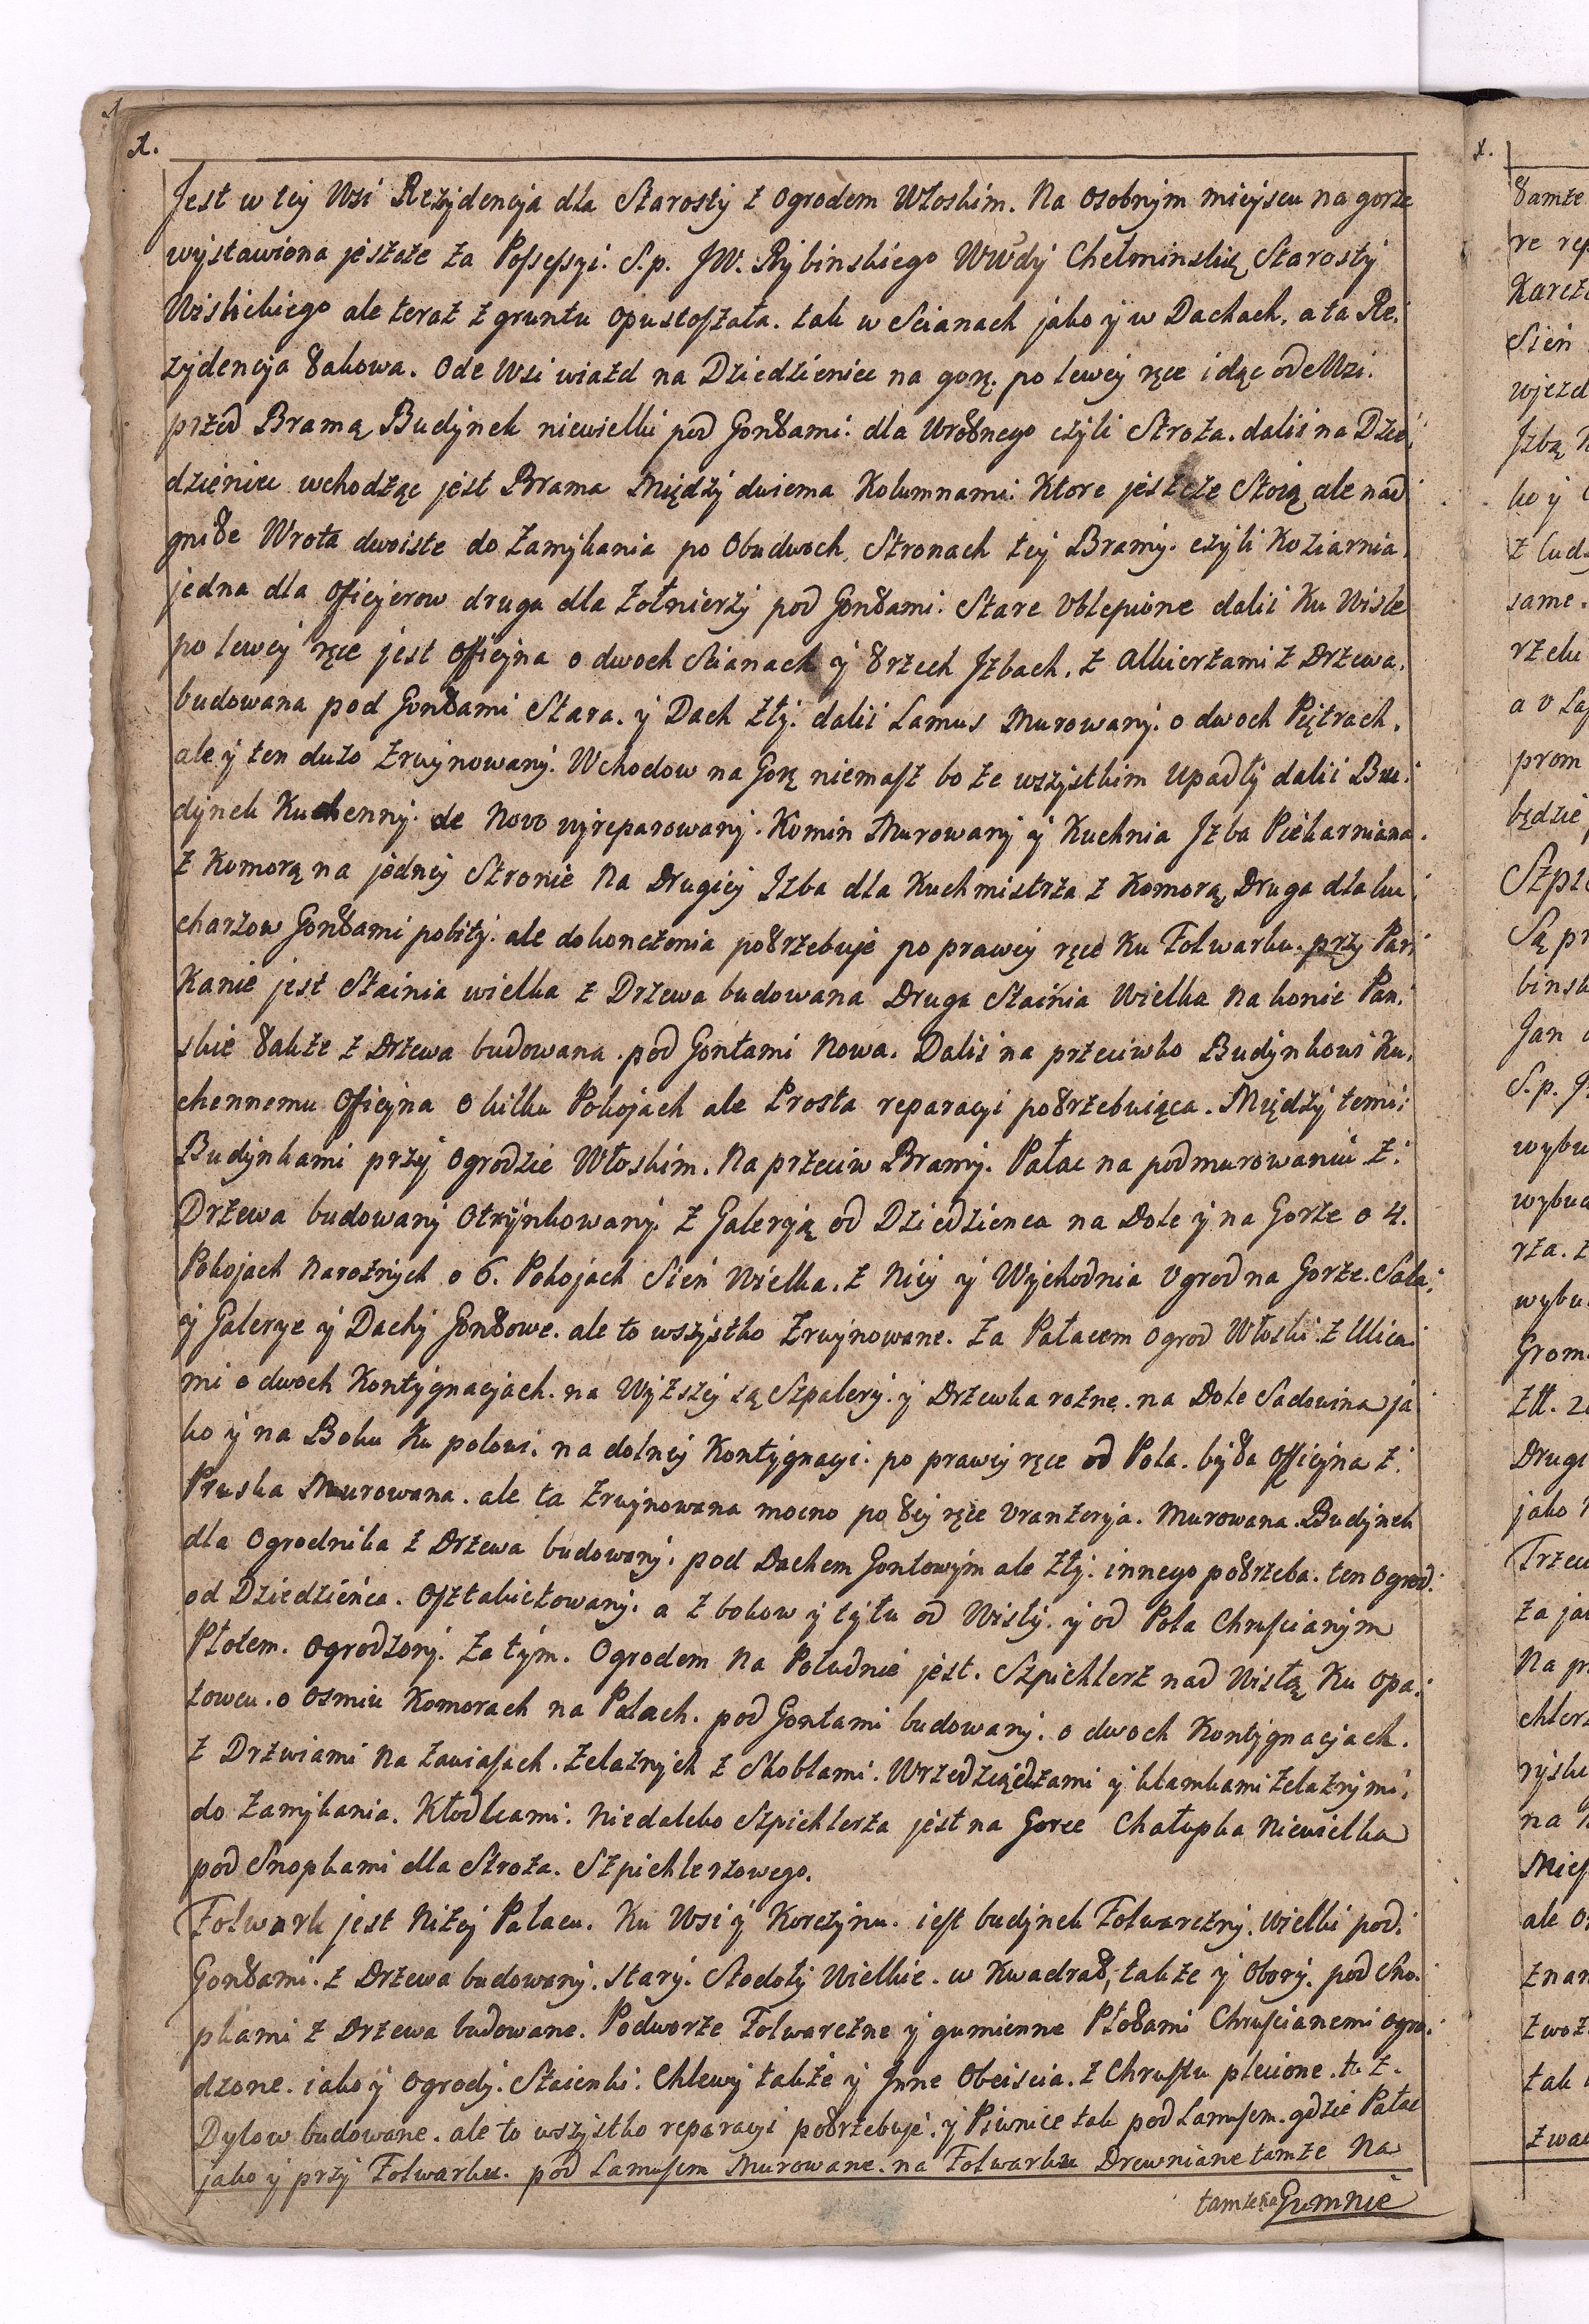 1.
Jest w tey Wsi Rezydencja dla Starosty z Ogrodem Włoskim. Na Osobnym mieyscu na gorze
wystawiona jeszcze za Possessyi. S.p. JW. Rybinskiego Wwdy Chełminskię Starosty
Wislickiego ale teraz z gruntu Opustoszała. tak w Scianach jako y w Dachach, a ta Re.
zydencja takowa. Ode Wsi wiazd na Dziedzieniec na gorę. po lewey ręce idąc ode Wsi.
przed Bramą Budynek niewielki pod Gontami. dla Wrotnego czyli Stroza. dalii na Dzie.
dzieniec wchodząc jest Brama Między dwiema Kolumnami. Ktore jeszcze Stoią ale nad
gniłe Wrota dwoiste do Zamykania po Obudwoch Stronach tey Bramy. czyli Koziarnia,
jedna dla Officyerow druga dla Zołnierzy pod Gontami. Stare Oblepione dalii Ku Wisle
po lewey ręce jest Officyna o dwoch Scianach y trzech Izbach. z Alkierzami z Drzewa.
budowana pod Gontami Stara. y Dach zły. dalii Lamus Murowany. o dwoch Piętrach.
ale y ten duzo Zruynowany. Wchodow na Gorę niemasz bo ze wszystkim upadły dalii Bu.
dynek Kuchenny. de Novo wyreparowany. Komin Murowany y Kuchnia Izba Piekarniana.
z Komorą na jedney Stronie Na Drugiey Izba dla Kuchmistrza z Komorą Druga dla ku
charzow Gontami pobity. ale dokonczenia potrzebuje po prawey ręce Ku Folwarku. przy Par.
Kanie jest Stainia wielka z Drzewa budowana Druga Stainia Wielka na konie Pan.
skie takze z Drzewa budowana. pod Gontami Nowa. Dalii na przeciwko Budynkowi Ku.
chennemu Officyna o kilku Pokojach ale Prosta reparacyi potrzebuiąca. Między temi.
Budynkami przy Ogrodzie Włoskim. Na przeciw Bramy. Pałac na podmurowaniu z.
Drzewa budowany Otrynkowany. z Galeryją od Dziedzienca na Dole y na Gorze o 4.
Pokojach Naroznych o 6. Pokojach Sień Wielka. z Niey y Wychodnia Ogrod na Gorze. Sala.
y Galerye y Dachy Gontowe. ale to wszystko Zruynowane. Za Pałacem Ogrod Włoski z Ulica.
mi o dwoch Kontygnacjach. na Wyzszey są Szpalery. y Drzewka rozne. na Dole Sadowina ja
ko y na Boku Ku polowi. na dolney Kontygnacyi. po prawey ręce od Pola. byta Officyna z.
Pruska Murowana. ale ta Zruynowana mocno po tey ręce Oranzerya. Murowana. Budynek
dla Ogrodnika z Drzewa budowany. pod Dachem Gontowym ale zły. innego potrzeba. ten Ogrod.
od Dziedzieńca. Osztakietowany. a z bokow y tyłu od Wisły. y od Pola Chruscianym
Płotem. Ogrodzony. Za tym. Ogrodem na Południe jest. Szpichlerz nad Wisłą Ku Opa.
towcu. o Osmiu Komorach na Palach. pod Gontami budowany. o dwoch Kontygnacjach.
z Drzwiami na zawiasach. Zelaznych z Skoblami. Wrzedziądzami y klamkami Zelaznymi,
do Zamykania. Kłodkami. Niedaleko Szpichlerza jest na Gorce Chałupka Niewielka
pod Snopkami dla Stroza. Szpichlerzowego.
Folwark jest Nizey Pałacu. Ku Wsi y Korczynu. iest budynek Folwarczny. Wielki pod.
Gontami. z Drzewa budowany. stary. Stodoły Wielkie. w Kwadrat, takze y Obory. pod Sno.
pkami z Drzewa budowane. Podworze Folwarczne y gumienne Płotami Chruscianemi ogro.
dzone. iako y Ogrody. Staienki. Chlewy takze y Inne Obeiscia. z Chrustu plecione. tu z.
Dylow budowane. ale to wszystko reparacyi potrzebuje. y Piwnice tak pod Lamusem. gdzie Pałac
jako y przy Folwarku. pod Lamusem Murowane. na Folwarku Drewniane tamze Na
tamze na Gumnie